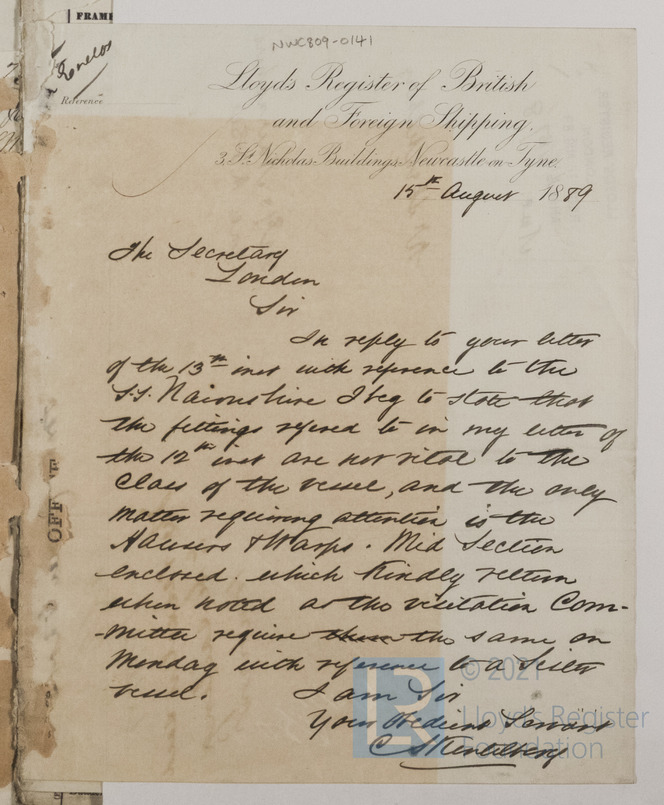 FRAME
Enclos
Reference
NWC809-0141
Lloyd's Register of British
and Foreign Shipping.
3, St. Nicholas Buildings, Newcastle-on-Tyne.
15th August 1889
The Secretary
London
Sir
In reply to your letter
of the 13th inst with reference to the
S.S. Nairnshire I beg to state that
the fittings refered to in my letter of
the 12th inst are not vital to the
Class of the vessel, and the only
matter requiring attention is the
Hawsers & Warps. Mid Section
enclosed. which Kindly return
when noted as the visitation Com-
-mittee require them the same on
Monday with reference to a Sister
vessel.
I am Sir
Your Obedient Servant
OFF
© 2021
Lloyd's Register
Foundation
LR